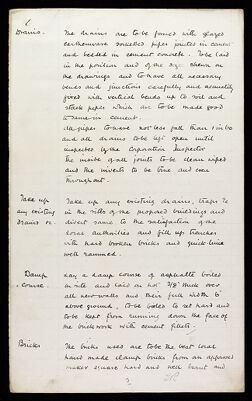 Drains. The drains are to be formed with glazed
earthenware socketted pipes jointed in cement
and bedded in cement concrete. To be laid
in the position and of the size shewn on
the drawings and to have all necessary
bends and junctions carefully and neatly
fixed with vertical bends up to soil and
stack pipes which are to be made good
to same in cement.
All pipes to have not less fall than 1 in 60
and all drains to be left open until
inspected by the Corporation Inspector
The inside of all joints to be clean wiped
and the inverts to be true and even
throughout.
Take up Take up any existing drains, traps &c
any existing in the site of the proposed buildings and
drains &c. divert same to the satisfaction of the
local authorities and fill up trenches
with hard broken bricks and quick lime
well rammed.
Damp Lay a damp course of asphalte boiled
course. on site and laid on hot 3/8" thick over
all new walls and their full width 6"
above ground, to be boiled to set hard and
to be kept from running down the face of
the brickwork with cement fillets.
Bricks The bricks used are to be the best local
hand made clamp bricks from an approved
maker square hard and well burnt and